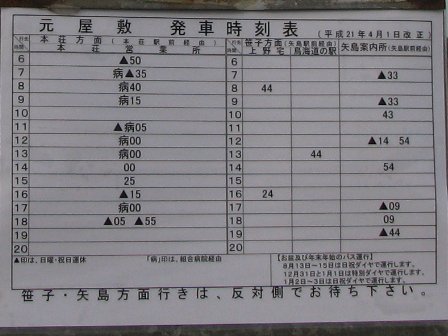 元屋敷 発車時刻表 (平成21年4月1日改正)
行先 本荘方面(本荘駅前経由) 行先 笹子方面(矢島駅前経由) 矢島案内所(矢島駅前経由)
時間 本荘営業所 時間 上野宅 鳥海道の駅
6 ▲50 6
7 病▲35 7 ▲33
8 病40 8 44
9 病15 9 ▲33
10 10 43
11 ▲病05 11
12 病00 12 ▲14 54
13 病00 13 44
14 00 14 54
15 25 15
16 ▲15 16 24
17 病00 17 ▲09
18 ▲05 ▲55 18 09
19 19 ▲44
20 20
▲印は、日曜・祝日運休 「病」印は、組合病院経由
【お盆及び年末年始のバス運行】
8月13日~15日は日祝ダイヤで運行します。
12月31日と1月1日は特別ダイヤで運行します。
1月2日~3日は日祝ダイヤで運行します。
笹子・矢島方面行きは、反対側でお待ち下さい。